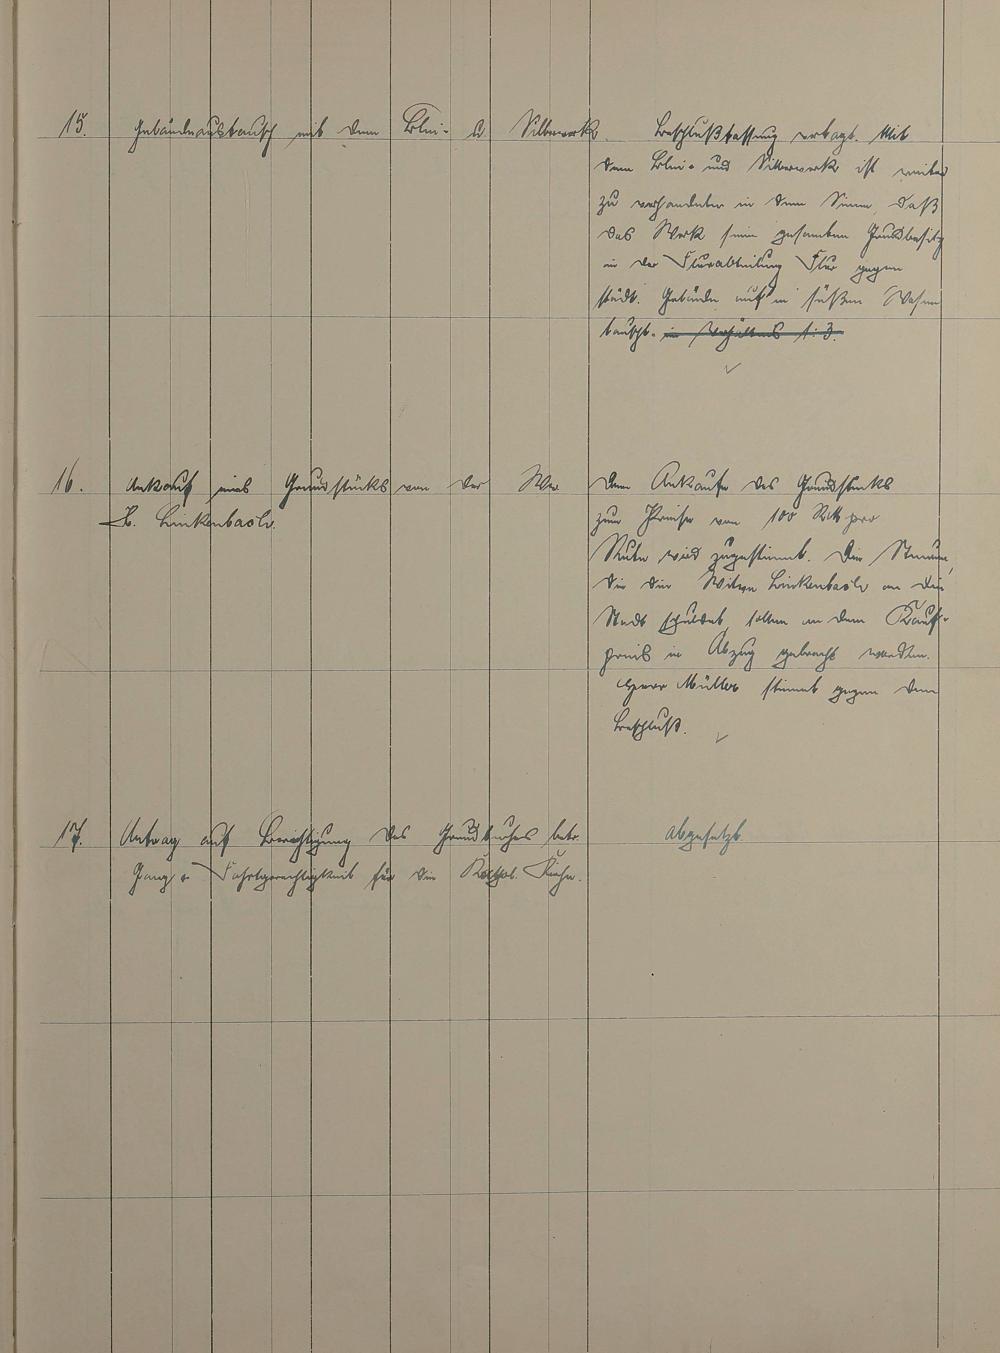 15. Geländeaustausch mit dem Blei- u. Silberwerk.
Beschlußfassung vertagt. Mit
dem Blei- und Silberwerk ist weiter
zu verhandeln in dem Sinne, daß
das Werk sein gesamten Grundbesitz
in der Flurabteilung Flur gegen
städt. Gelände auf'm süßen Wasen
tauscht. im Verhältnis 1:3.
16. Ankauf eines Grundstücks von der Wwe.
H. Linkenbach.
Dem Ankaufe des Grundstücks
zum Preise von 100 RM pro
Rute wird zugestimmt. Die Steuern,
die die Witwe Linkenbach an die
Stadt schuldet, sollen an dem Kauf-
preis in Abzug gebracht werden.
Herr Müller stimmt gegen den
Beschluß.
17. Antrag auf Berichtigung des Grundbuches betr.
Gang- u. Fahrtgerechtigkeit für die Kathol. Kirche.
abgesetzt